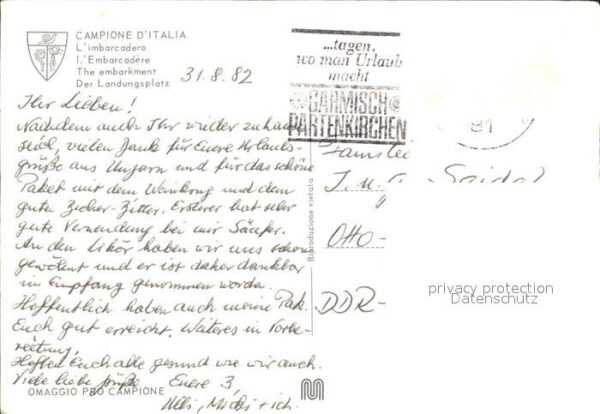 CAMPIONE D'ITALIA
L'imbarcadero
L'Embarcadère
The embarkment
Der Landungsplatz
31.8.82
...tagen,
wo man Urlaub
macht
GARMISCH
PARTENKIRCHEN
81
Ihr Lieben!
Nachdem auch Ihr wieder zuhaus
seid, vielen Dank für Euere Urlaubs-
grüße aus Ungarn und für das schöne
Paket mit dem Weinkrug und dem
guten Zicher-Zitter. Ersterer hat sehr
gute Verwendung bei mir Säufer.
An den Likör haben wir uns schon
gewöhnt und er ist daher dankbar
in Empfang genommen worden.
Hoffentlich haben auch meine Pak.
Euch gut erreicht. Weiteres in Vorbe-
reitung.
Hoffen Euch alle gesund wie wir auch.
Viele liebe Grüße Euere 3,
Riproduzione vietata
Otto-
DDR-
privacy protection
Datenschutz
OMAGGIO PRO CAMPIONE